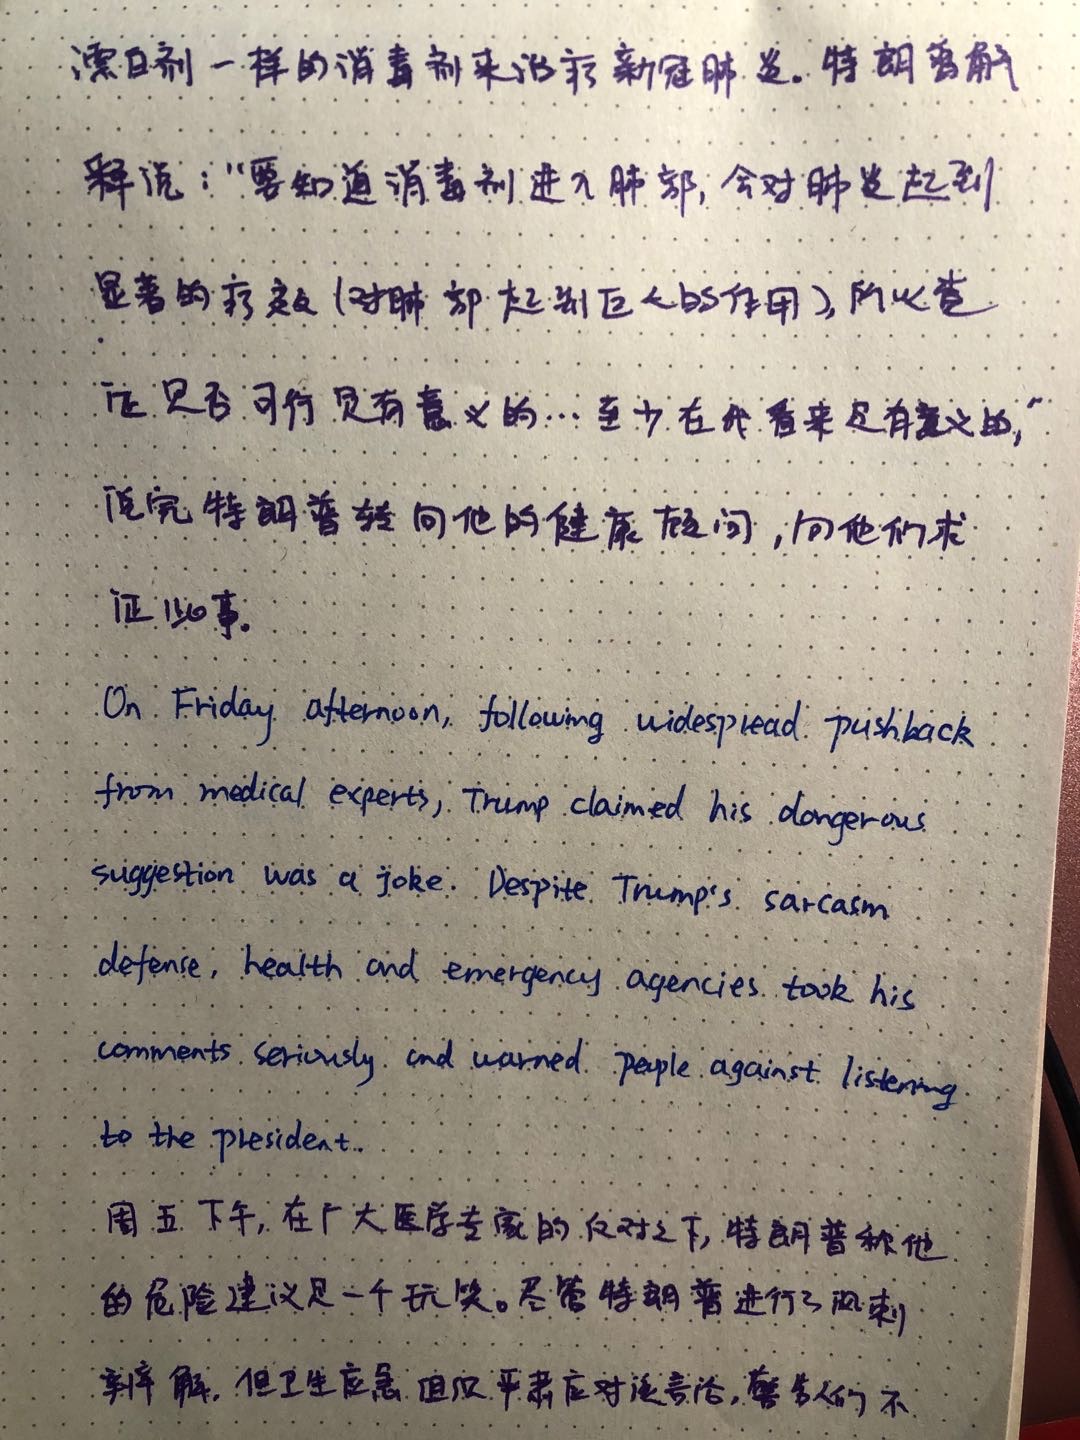 漂白剂一样的消毒剂来治疗新冠肺炎。特朗普解
释说："要知道消毒剂进入肺部,会对肺炎起到
显著的疗效(对肺部起到巨大的作用),所以查
证是否可行是有意义的…至少在我看来是有意义的,"
说完特朗普转向他的健康顾问,向他们求
证此事。
On Friday afternoon, following widespread pushback
from medical experts, Trump claimed his dangerous
suggestion was a joke. Despite Trump's sarcasm
defense, health and emergency agencies took his
comments seriously and warned people against listening
to the president.
周五下午,在广大医学专家的反对之下,特朗普称他
的危险建议是一个玩笑。尽管特朗普进行了讽刺
辩解,但卫生应急组织严肃应对该言论,警告人们不